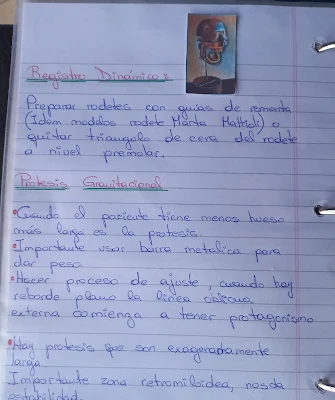 Registro Dinámico:
Preparar rodetes con guías de remonta
(Idem modelos rodete Marta Mattioli) o
quitar triangulo de cera del rodete
a nivel premolar.
Protesis Gravitacional
• Cuando el paciente tiene menos hueso
más larga es la protesis.
• Importante usar barra metalica para
dar peso.
• Hacer proceso de ajuste, cuando hay
reborde plano la linea oblicua
externa comienza a tener protagonismo
• Hay protesis que son exageradamente
larga.
Importante zona retromiloidea, nos da
estabilidad.